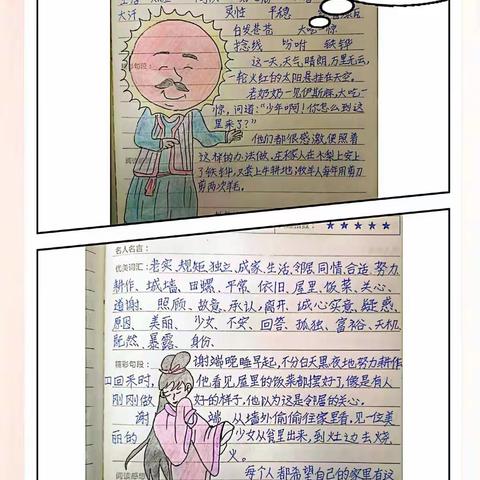 大汗 灵性 平稳
白发苍苍 大吃一惊
捻线 吩咐 铁铧
这一天,天气晴朗,万里无云,
一轮火红的太阳悬挂在天空。
老奶奶一见伊斯麻,大吃一
惊,问道:“少年啊!你怎么到这
里来了?”
他们都很感激,便照着
这样的办法做。庄稼人在木犁上安上
了铁铧,又套上牛耕地;牧羊人每年用剪刀
剪两次羊毛。
★★★★★
名人名言:
优美词汇:老实、规矩、独立、成家、生活、邻居、同情、合适、努力、
耕作、城墙、田螺、平常、依旧、屋里、饭菜、关心、
道谢、照顾、故意、承认、离开、诚心实意、疑惑、
原因、美丽、少女、不安、回答、孤独、富裕、天机、
既然、暴露、身份、
精彩句段:谢端晚睡早起,不分白天黑夜地努力耕作
回来时,他看见屋里的饭菜都摆好了,像是有人
刚刚做好的样子,他以为这是邻居的关心。
谢端从墙外偷偷往家里看,见一位美
丽的少女从瓮里出来,到灶边去烧
火。
每个人都希望自己的家里有这